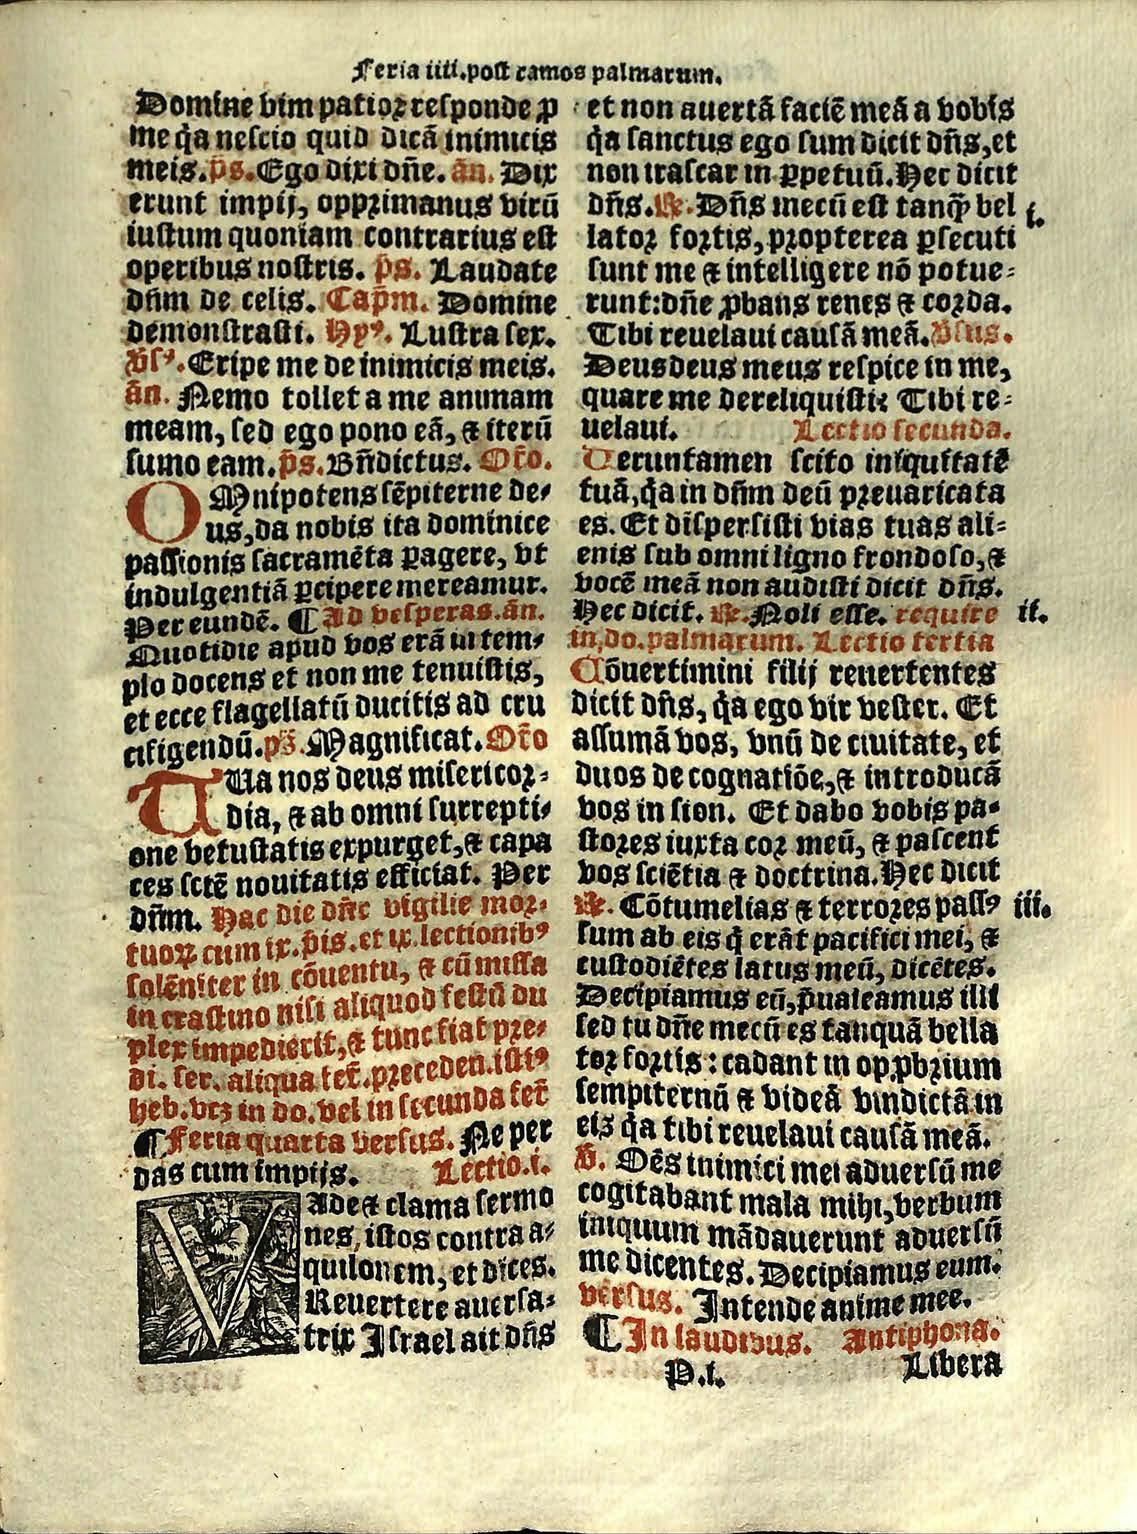 Feria iiii.post ramos palmarum.
Domine vim patior responde p̱
me q̇a nescio quid dicā inimicis
meis.p̄s.Ego dixi dn̄e. ān. Dix
erunt impij, opprimanus virū
iustum quoniam contrarius est
operibus nostris. p̄s. Laudate
dn̄m de celis. Cap̄m. Domine
demonstrasti. Hyꝰ. Lustra sex.
v̄sꝰ.Eripe me de inimicis meis.
ān. Nemo tollet a me animam
meam, sed ego pono eā, ⁊ iterū
sumo eam.p̄s.Bn̄dictus. Oro̅.
OMnipotens sēpiterne de⸗
us,da nobis ita dominice
passionis sacramēta ꝑagere, vt
indulgentiā ꝑcipere mereamur.
Per eundē. ¶Ad vesperas.ān.
Quotidie apud vos erā in tem⸗
plo docens et non me tenuistis,
et ecce flagellatū ducitis ad cru
cifigendū.p̄s.Magnificat.Oro̅
TUa nos deus misericor⸗
dia, ⁊ ab omni surrepti⸗
one vetustatis expurget,⁊ capa
ces sctē nouitatis efficiat. Per
dn̄m. Hac die dn̄e vigilie mor⸗
tuoꝝ cum ix.p̄is.et ix.lectionibꝰ
solēniter in cōuentu, ⁊ cū missa
in crastino nisi aliquod festū du
plex impedierit,⁊ tunc fiat pre⸗
di. fer. aliqua fet̄.preceden.istiꝰ
heb.vtꝫ in do.vel in secunda fet̄
¶Feria quarta versus. Ne per
das cum impijs. Lectio.i.
VAde⁊ clama sermo
nes, istos contra a⸗
quilonem, et dices.
Reuertere auersa⸗
trix Israel ait dn̄s
et non auertā faciē meā a vobis
q̇a sanctus ego sum dicit dn̄s,et
non irascar in ꝑpetuū.Hec dicit
dn̄s.℟.Dn̄s mecū est tanꝙ̄ bel i.
lator fortis,propterea ꝑsecuti
sunt me ⁊ intelligere nō potue⸗
runt:dn̄e ꝓbans renes ⁊ corda.
Tibi reuelaui causā meā.Vsus.
Deusdeus meus respice in me,
quare me dereliquisti: Tibi re⸗
uelaui. Lectio secunda.
Veruntamen scito iniquitatē
tuā,q̇a in dn̄m deū preuaricata
es. Et dispersisti vias tuas ali⸗
enis sub omni ligno frondoso,⁊
vocē meā non audisti dicit dn̄s.
Hec dicit. ℟.Noli esse. require ii.
in,do.palmarum. Lectio tertia
Cōuertimini filij reuertentes
dicit dn̄s, q̇a ego vir vester. Et
assumā vos, vnū de ciuitate, et
duos de cognatiōe,⁊ introducā
vos in sion. Et dabo vobis pa⸗
stores iuxta cor meū, ⁊ pascent
vos sciētia ⁊ doctrina.Hec dicit
℟. Cōtumelias ⁊ terrores passꝰ iii.
sum ab eis q̄ erāt pacifici mei, ⁊
custodiētes latus meū, dicētes.
Decipiamus eū,p̄ualeamus illi
sed tu dn̄e mecū es tanquā bella
tor fortis : cadant in opꝓbrium
sempiternū ⁊ videā vindictā in
eis q̇a tibi reuelaui causā meā.
℣. Oēs inimici mei aduersū me
cogitabant mala mihi,verbum
iniquum mādauerunt aduersū
me dicentes. Decipiamus eum.
versus. Intende anime mee.
¶In laudibus. Antiphona.
P.i. Libera